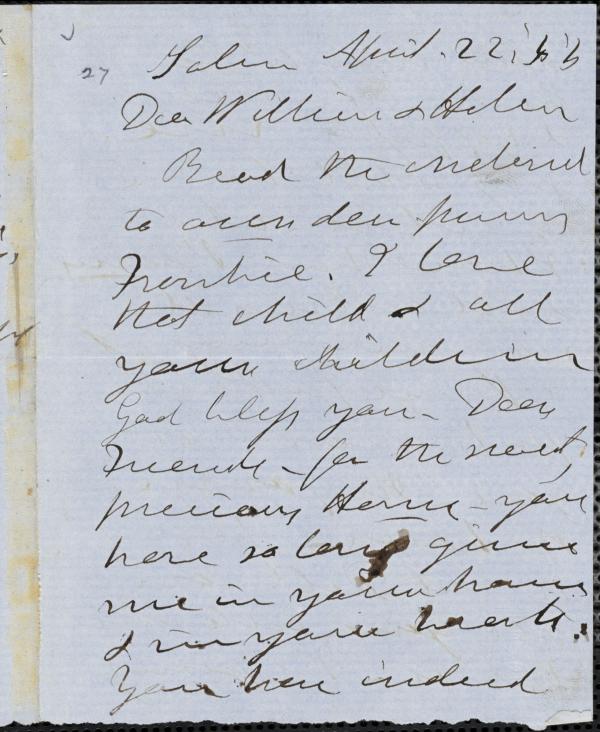 27
Salem April. 22, '66
Dear William & Helen
Read the enclosed
to our dear precious
Frankie. I love
that child & all
your children
God bless you - Dear
Friends - for the sweet,
precious Home - you
have so long given
me in your home
& in your hearts.
You have indeed